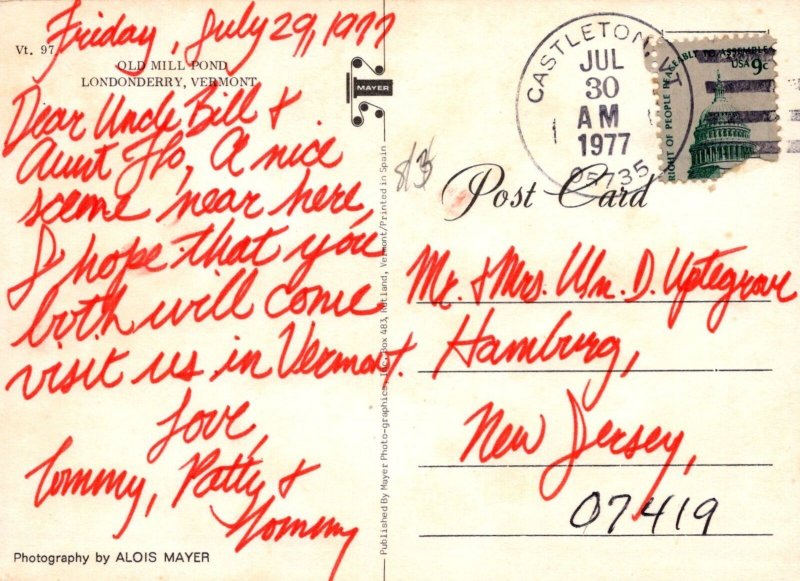 Friday, July 29, 1977
Vt. 97
OLD MILL POND
LONDONDERRY, VERMONT
Dear Uncle Bill &
Aunt Flo, A nice
scene near here,
I hope that you
both will come
visit us in Vermont.
Love,
Tommy, Patty &
Tommy
Photography by ALOIS MAYER
MAYER
Published By Mayer Photo-graphics, Inc. Box 483, Rutland, Vermont/Printed in Spain
CASTLETON, VT
JUL
30
AM
1977
05735
RIGHT OF PEOPLE PEACEABLY TO ASSEMBLE
USA 9c
Post Card
Mr. & Mrs. Wm. D. Uptegrove
Hamburg,
New Jersey,
07419